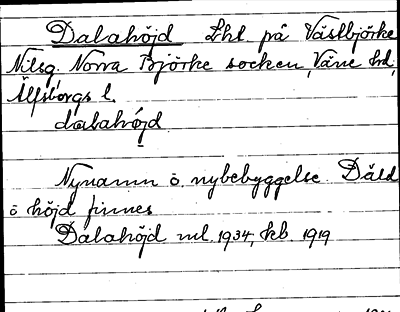 Dalahöjd Lht på Västbjörke
Nilsg. Norra Björke socken, Väne hd,
Älfsborgs l.
dalahöjd
Nynamn o. nybebyggelse. Däld
o höjd finnes
Dalahöjd ml. 1934, kb. 1919